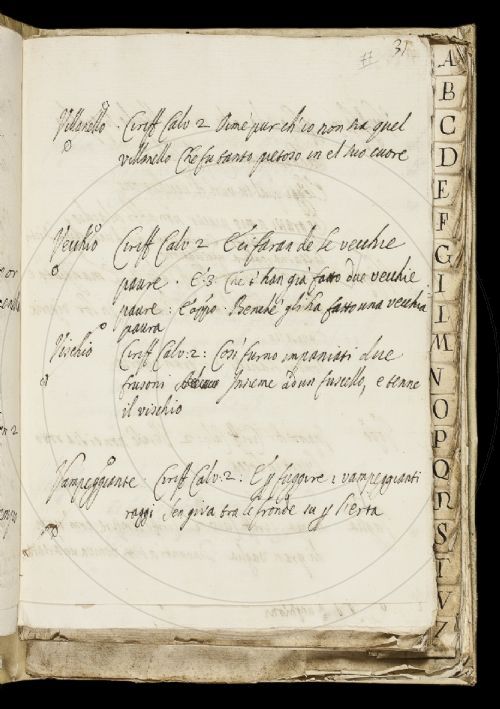 77 31
Villanello. Ciriff Calv 2 Dime pur ch'io non ha quel
villanello che fu tanto pietoso in el suo cuore
Vecchio Ciriff Calv 2 E ti faran de le vecchie
paure. E 3. Che t'han già fatto due vecchie
paure: e apps. Benche gli ha fatto una vecchia
paura
Vischio Ciriff Calv. 2: Così furno impaniati due
frusoni Insieme ad un fuscello, e tenne
il vischio
Vampeggiante. Ciriff Calv. 2: E p fuggire i vampeggianti
raggi Sen giva tra le fronde su p l'erta
A
B
C
D
E
F
G
I
L
M
N
O
P
Q
R
S
T
V
Z